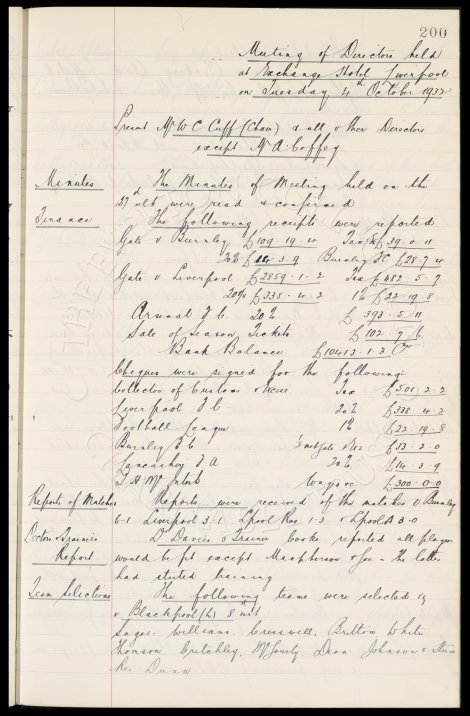 200
Meeting of Directors held
at Exchange Hotel Liverpool
on Tuesday 4th October 1932
Present Mr W C Cuff (Chair) & all other Directors
except Mr A. Coffey
Minutes The Minutes of Meeting held on the
27 ult were read & confirmed
Finance The following receipts were reported
Gate v Burnley £109-19-4 Tax £29-0-11
20% £14-3-9 Burnley F C £28-7-4
Gate v Liverpool £2859-1-2 Tax £482-5-7
20% £338-4-2 1% £22-19-8
Arsenal F C 20% £393-5-11
Sale of Season Tickets £102-7-6
Bank Balance £10413-1-3 Cr
Cheques were signed for the following:
Collector of Customs & Excise Tax £501-2-2
Liverpool F C 20% £338-4-2
Football League 1% £22-19-8
Burnley F C ½ net gate Res £53-2-0
Lancashire F A 20% £14-3-9
T. H. McIntosh Wages &c £300-0-0
Reports of Matches Reports were received of the matches v Burnley
6-1 Liverpool 3-1 L'pool Res 1-3 & L'pool A 3-0
Doctor & Trainer's Dr Davies & Trainer Cooke reported all players
Report would be fit except Macpherson & Gee - the latter
had started training
Team Selections The following teams were selected
v Blackpool (h) 8 inst
Sagar. Williams. Cresswell. Britton White
Thomson. Critchley. McGourty. Dean. Johnson & Stein
Res. Dunn